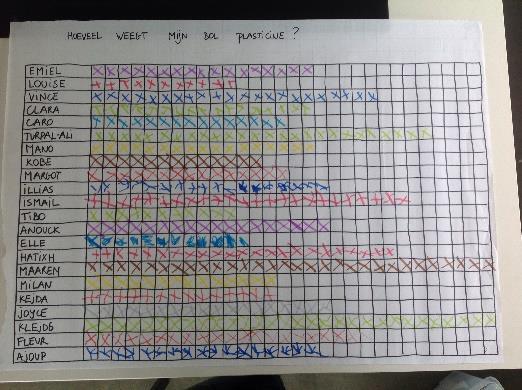 HOEVEEL WEEGT MIJN BOL PLASTICINE?
EMIEL
LOUISE
VINCE
CLARA
CARO
TURPAL-ALI
MANO
KOBE
MARGOT
ILLIAS
ISMAIL
TIBO
ANOUCK
ELLE
HATIXH
MAAREN
MILAN
KEJDA
JOYCE
FLEUR